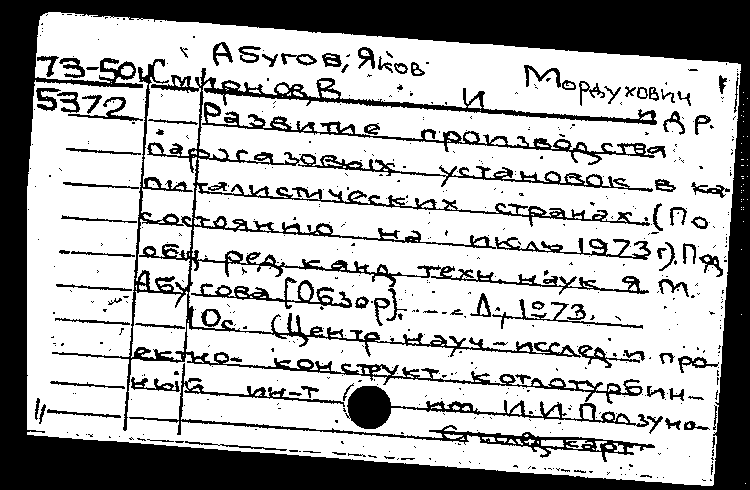 Абугов, Яков Мордухович
73-50ч Смирнов, В. и др.
5372 Развитие производства
парогазовых установок в ка-
питалистических странах. (По
состоянию на июль 1973 г). Под
общ. ред. канд. техн. наук Я. М.
Абугова [Обзор]. Л., 1973.
10с. (Центр. науч-исслед. и про-
ектно- конструкт. котлотурбин-
ный ин-т им. И.И. Ползуно-
См след карт